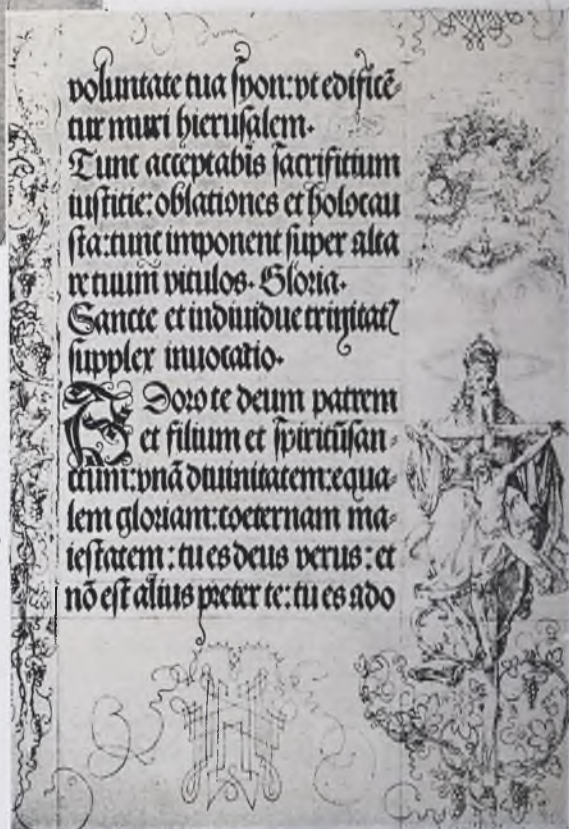 voluntate tua syon: vt edificē-
tur muri hierusalem.
Tunc acceptabis sacrifitium
iustitie: oblationes et holocau
sta: tunc imponent super alta
re tuum vitulos. Gloria.
Sancte et indiuidue trinitatꝭ
supplex inuocatio.
Adoro te deum patrem
et filium et spiritūsan-
ctum: vnā diuinitatem: equa-
lem gloriam: coeternam ma-
iestatem: tu es deus verus: et
nō est alius preter te: tu es ado